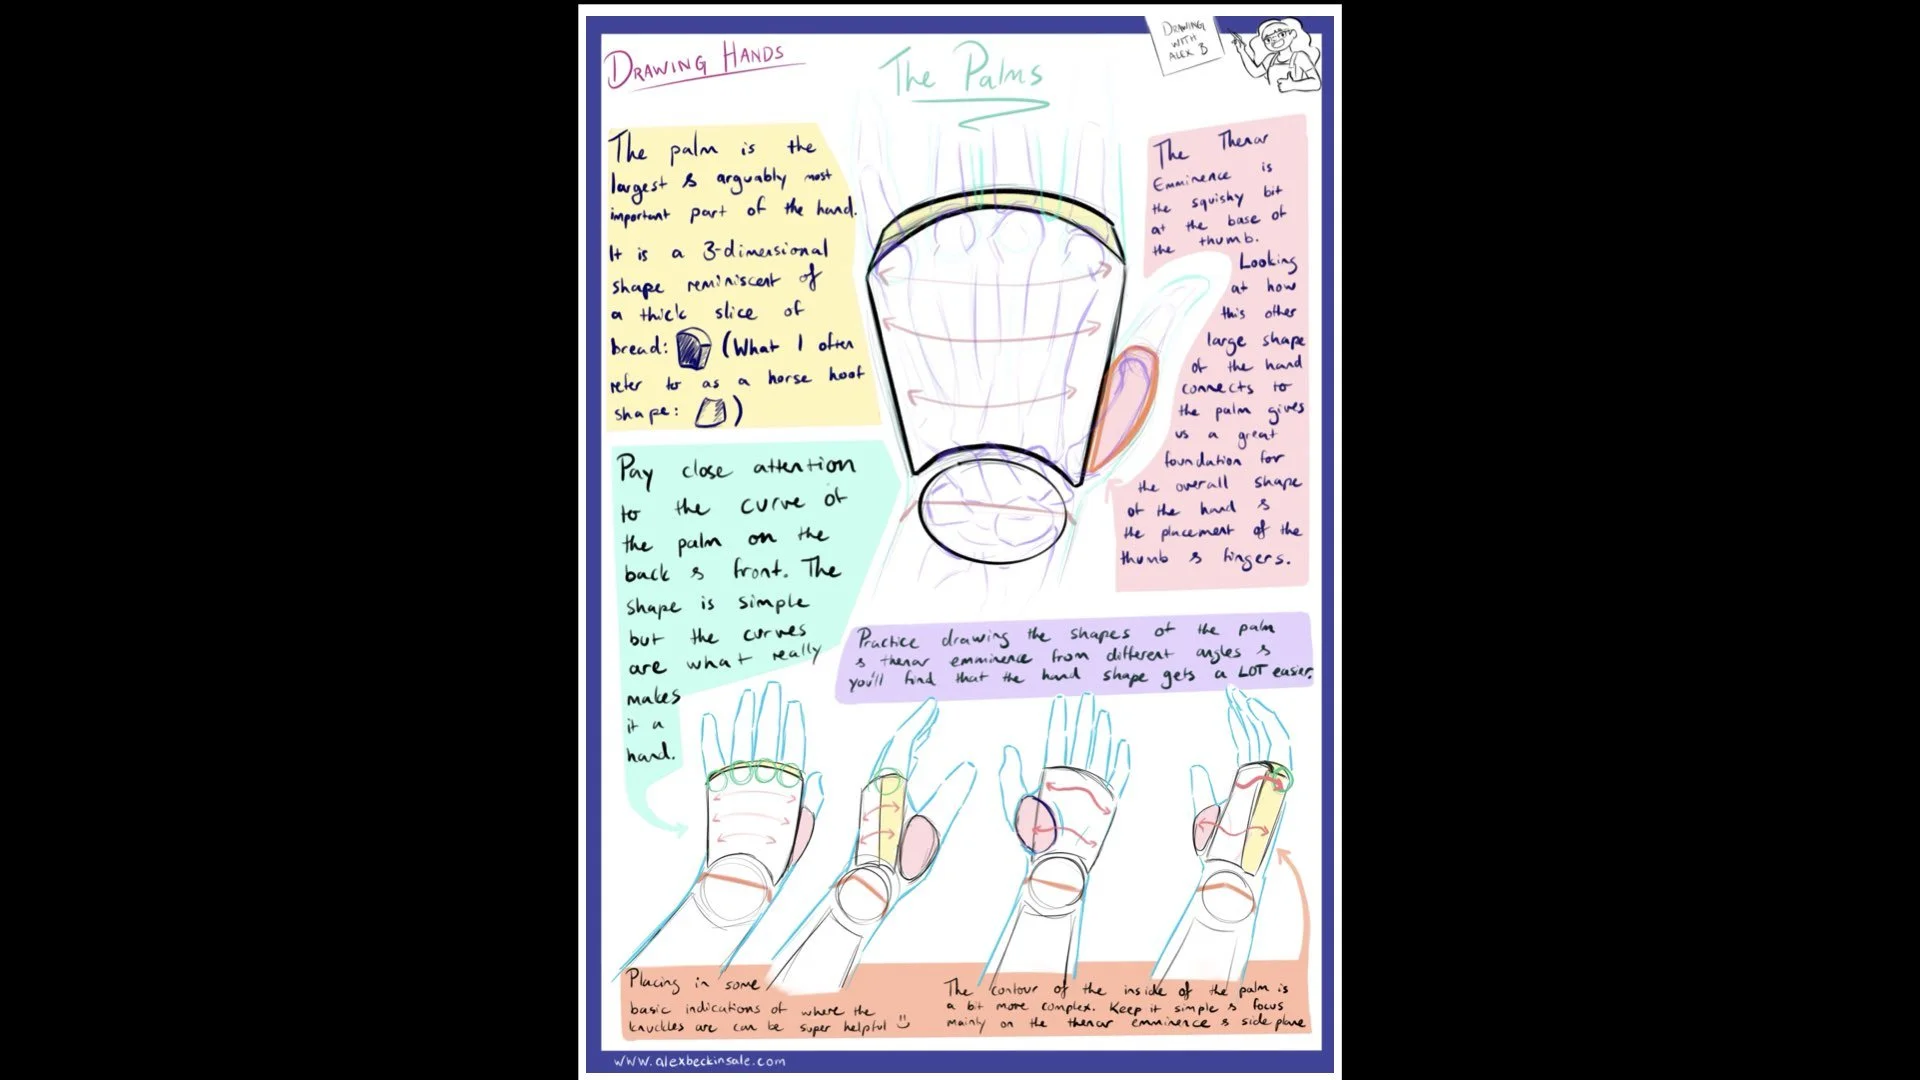 DRAWING HANDS
The Palms
DRAWING
WITH
ALEX B
The palm is the
largest & arguably most
important part of the hand.
It is a 3-dimensional
shape reminiscent of
a thick slice of
bread: (What I often
refer to as a horse hoof
shape: )
Pay close attention
to the curve of
the palm on the
back & front. The
shape is simple
but the curves
are what really
makes
it a
hand.
The Thenar
Emminence is
the squishy bit
at the base of
the thumb.
Looking
at how
this other
large shape
of the hand
connects to
the palm gives
us a great
foundation for
the overall shape
of the hand &
the placement of the
thumb & fingers.
Practice drawing the shapes of the palm
& thenar emminence from different angles &
you'll find that the hand shape gets a LOT easier.
Placing in some
basic indications of where the
knuckles are can be super helpful
The contour of the inside of the palm is
a bit more complex. Keep it simple & focus
mainly on the thenar emminence & side plane
www.alexbeckinsale.com